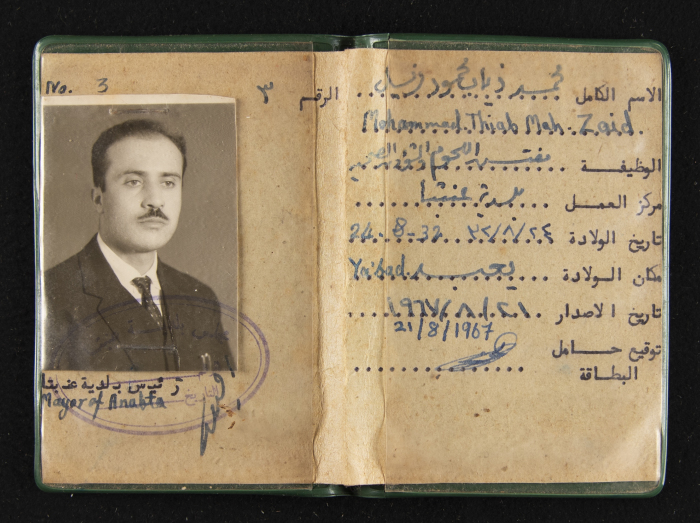 No. 3 الرقم ٣
رئيس بلدية عنبتا
Mayor of Anabta
الاسم الكامل محمد ذياب محمود زيد
Mohammed Thiab Mah. Zaid
الوظيفة مفتش اللحوم
مركز العمل بلدية عنبتا
تاريخ الولادة ٣٢/٨/٢٤ 24-8-32
مكان الولادة يعبد Ya'bad
تاريخ الاصدار ١٩٦٧/٨/٢١
21/8/1967
توقيع حامل
البطاقة